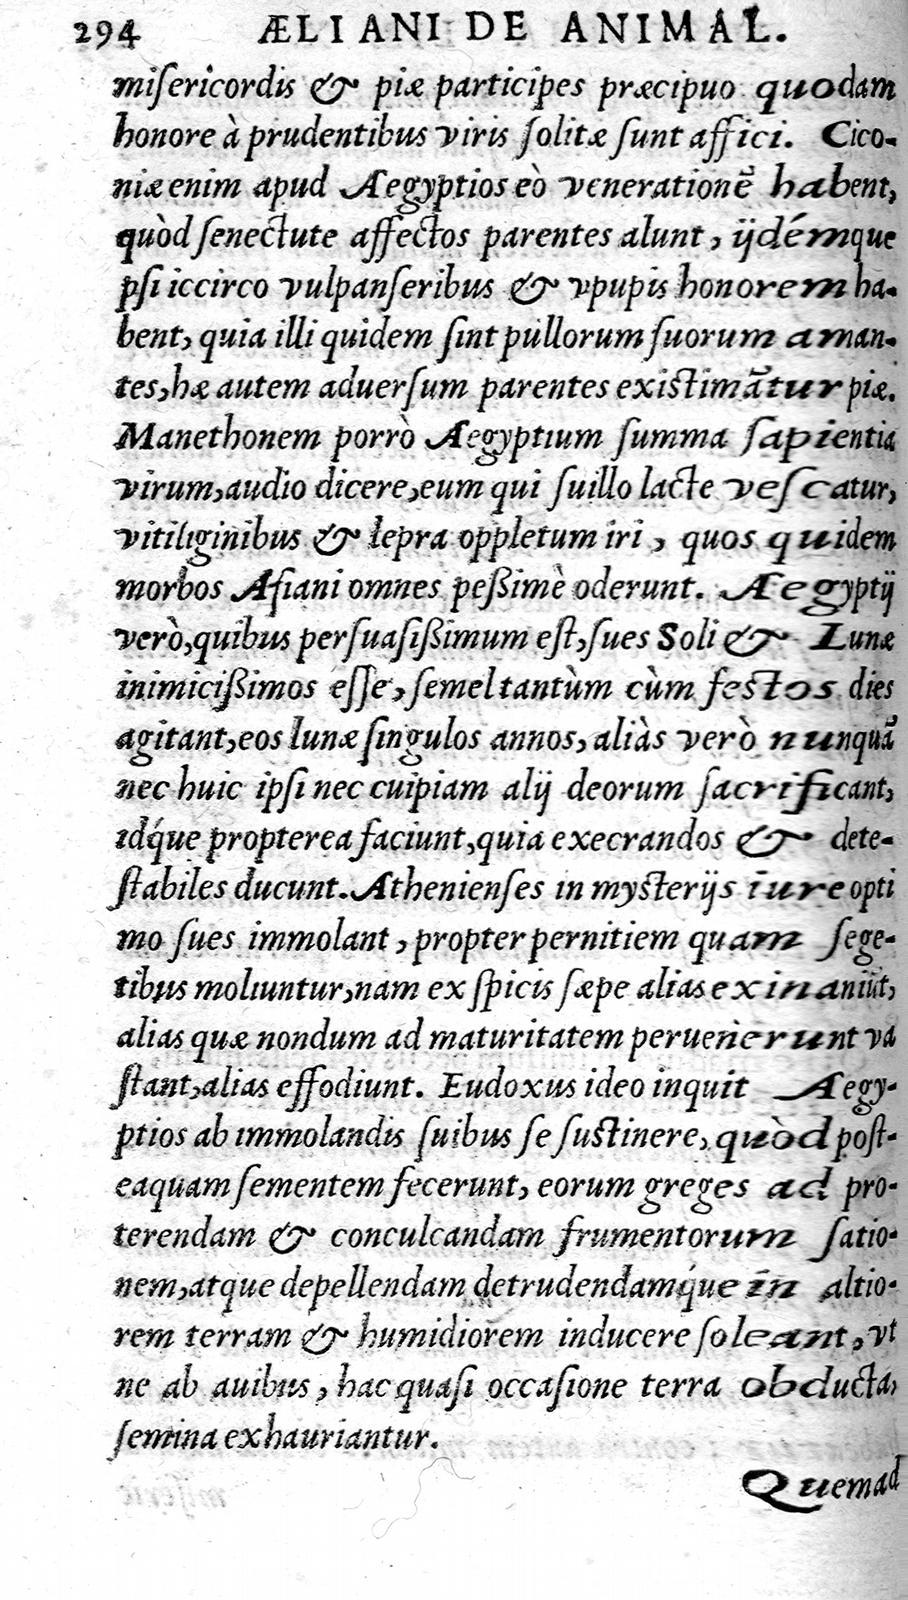 294 ÆLIANI DE ANIMAL.
miſericordis & piæ participes præcipuo quodam
honore à prudentibus viris ſolitæ ſunt affici. Cico-
niæ enim apud Ægyptios eò venerationẽ habent,
quòd ſenectute affectos parentes alunt, ijdémque
pſi iccirco vulpanſeribus & vpupis honorem ha-
bent, quia illi quidem ſint pullorum ſuorum aman-
tes, hæ autem aduerſum parentes existimãtur piæ.
Manethonem porrò Ægyptium ſumma ſapientia
virum, audio dicere, eum qui ſuillo lacte veſcatur,
vitiliginibus & lepra oppletum iri, quos quidem
morbos Aſiani omnes peßimè oderunt. Ægyptij
verò, quibus perſuaſißimum eſt, ſues Soli & Lunæ
inimicißimos eſſe, ſemel tantùm cùm festos dies
agitant, eos lunæ ſingulos annos, aliàs verò nunquã
nec huic ipſi nec cuipiam alij deorum ſacrificant,
idq́ue propterea faciunt, quia execrandos & dete-
ſtabiles ducunt. Athenienſes in mysterijs iure opti
mo ſues immolant, propter pernitiem quam ſege-
tibus moliuntur, nam ex ſpicis ſæpe alias exinaniũt,
alias quæ nondum ad maturitatem peruenerunt va
ſtant, alias effodiunt. Eudoxus ideo inquit Ægy-
ptios ab immolandis ſuibus ſe ſustinere, quòd poſt-
eaquam ſementem fecerunt, eorum greges ad pro-
terendam & conculcandam frumentorum ſatio-
nem, atque depellendam detrudendamq́ue in altio-
rem terram & humidiorem inducere ſoleant, vt
ne ab auibus, hac quaſi occaſione terra obducta,
ſemina exhauriantur.
Quemad